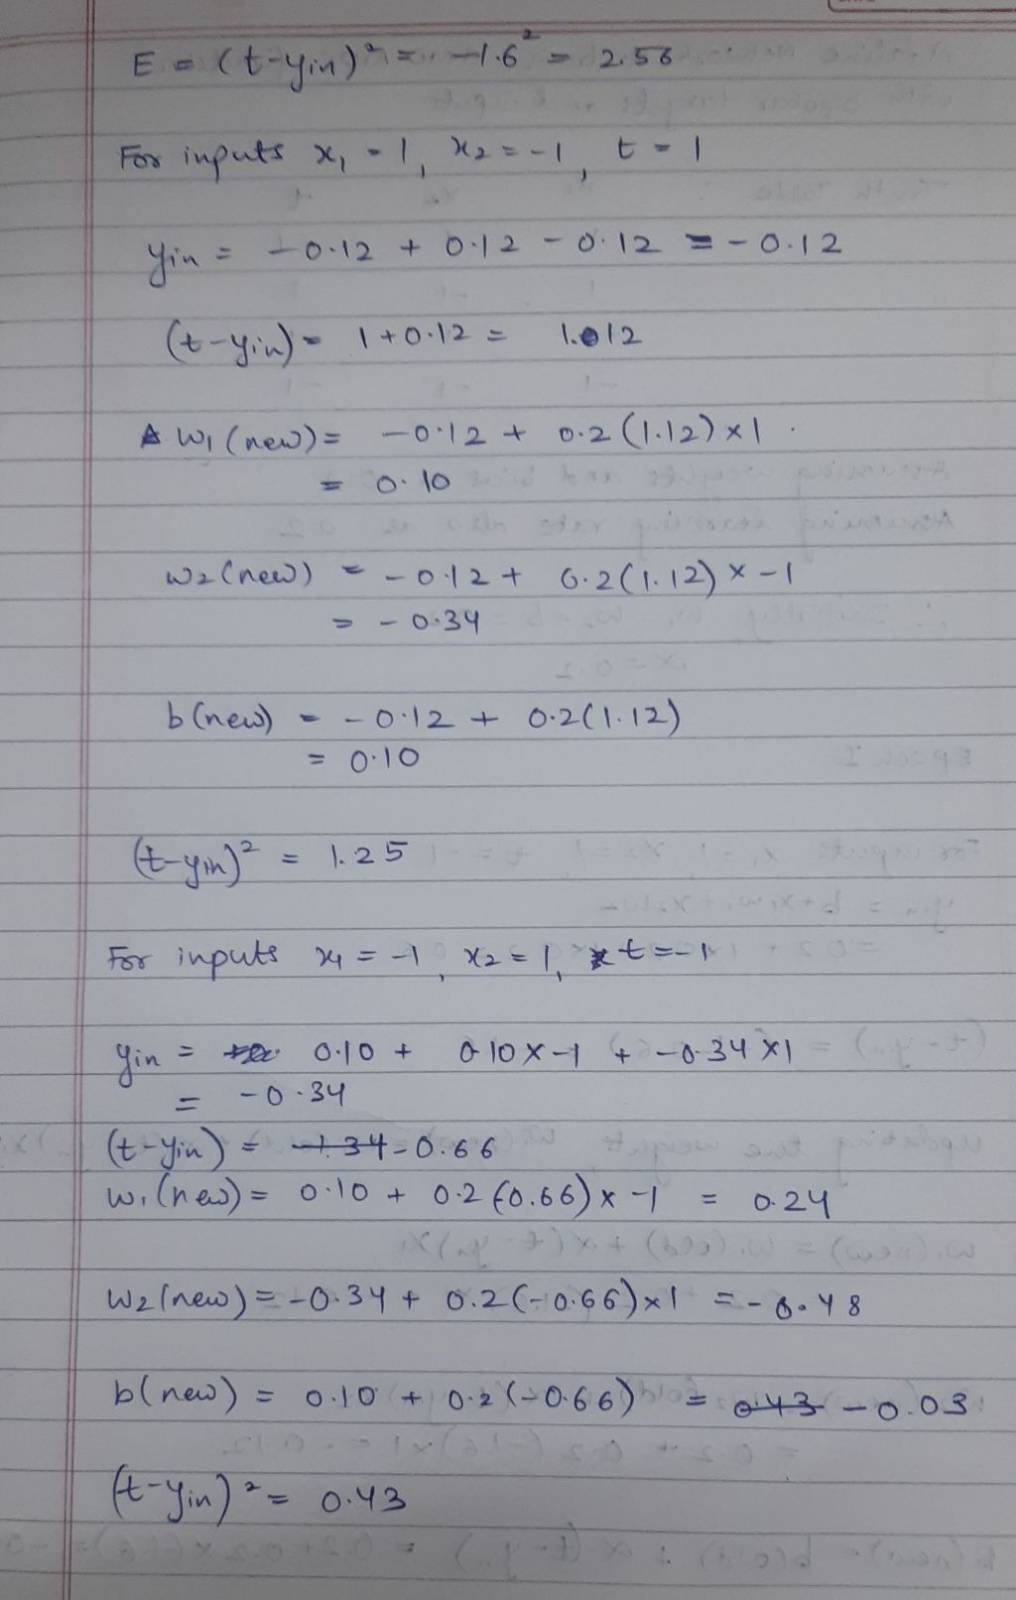 E = (t-yin)² = -1.6² = 2.56
For inputs x₁ = 1, x₂ = -1, t = 1
yin = -0.12 + 0.12 - 0.12 = -0.12
(t-yin) = 1+0.12 = 1.012
w₁(new) = -0.12 + 0.2(1.12)×1
= 0.10
w₂(new) = -0.12 + 0.2(1.12) × -1
= -0.34
b(new) = -0.12 + 0.2(1.12)
= 0.10
(t-yin)² = 1.25
For inputs x₁ = -1, x₂ = 1, t = -1
yin = 0.10 + 0.10 × -1 + -0.34 × 1
= -0.34
(t-yin) = -1.34 -0.66
w₁(new) = 0.10 + 0.2(-0.66) × -1 = 0.24
w₂(new) = -0.34 + 0.2(-0.66)×1 = -0.48
b(new) = 0.10 + 0.2(-0.66) = 0.43 -0.03
(t-yin)² = 0.43